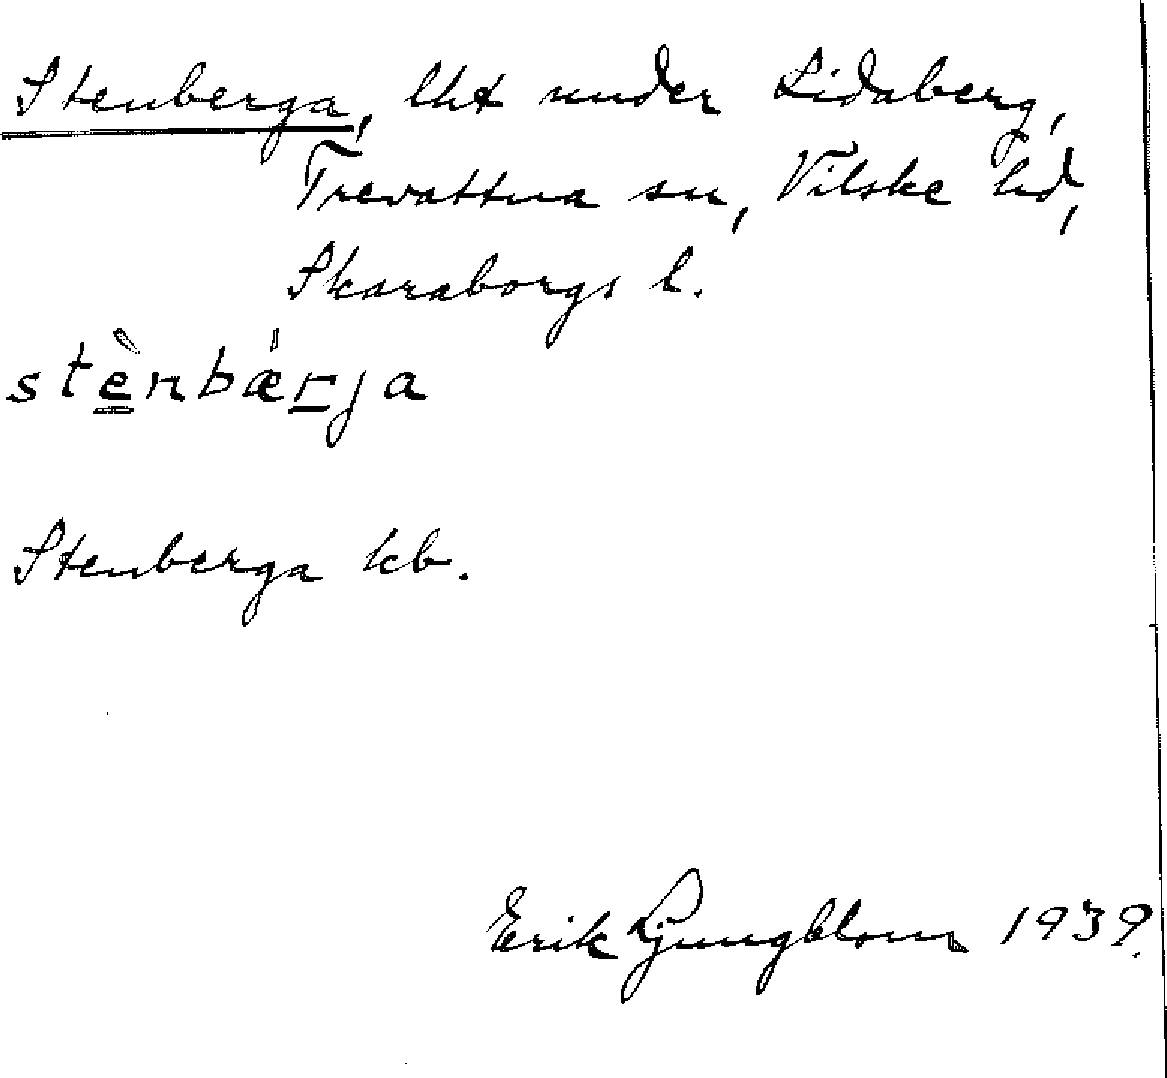 Stenberga, lht under Lidaberg,
Trevattna sn, Vilske hd,
Skaraborgs l.
stènbǽrja
Stenberga kb.
Erik Ljungblom 1939.